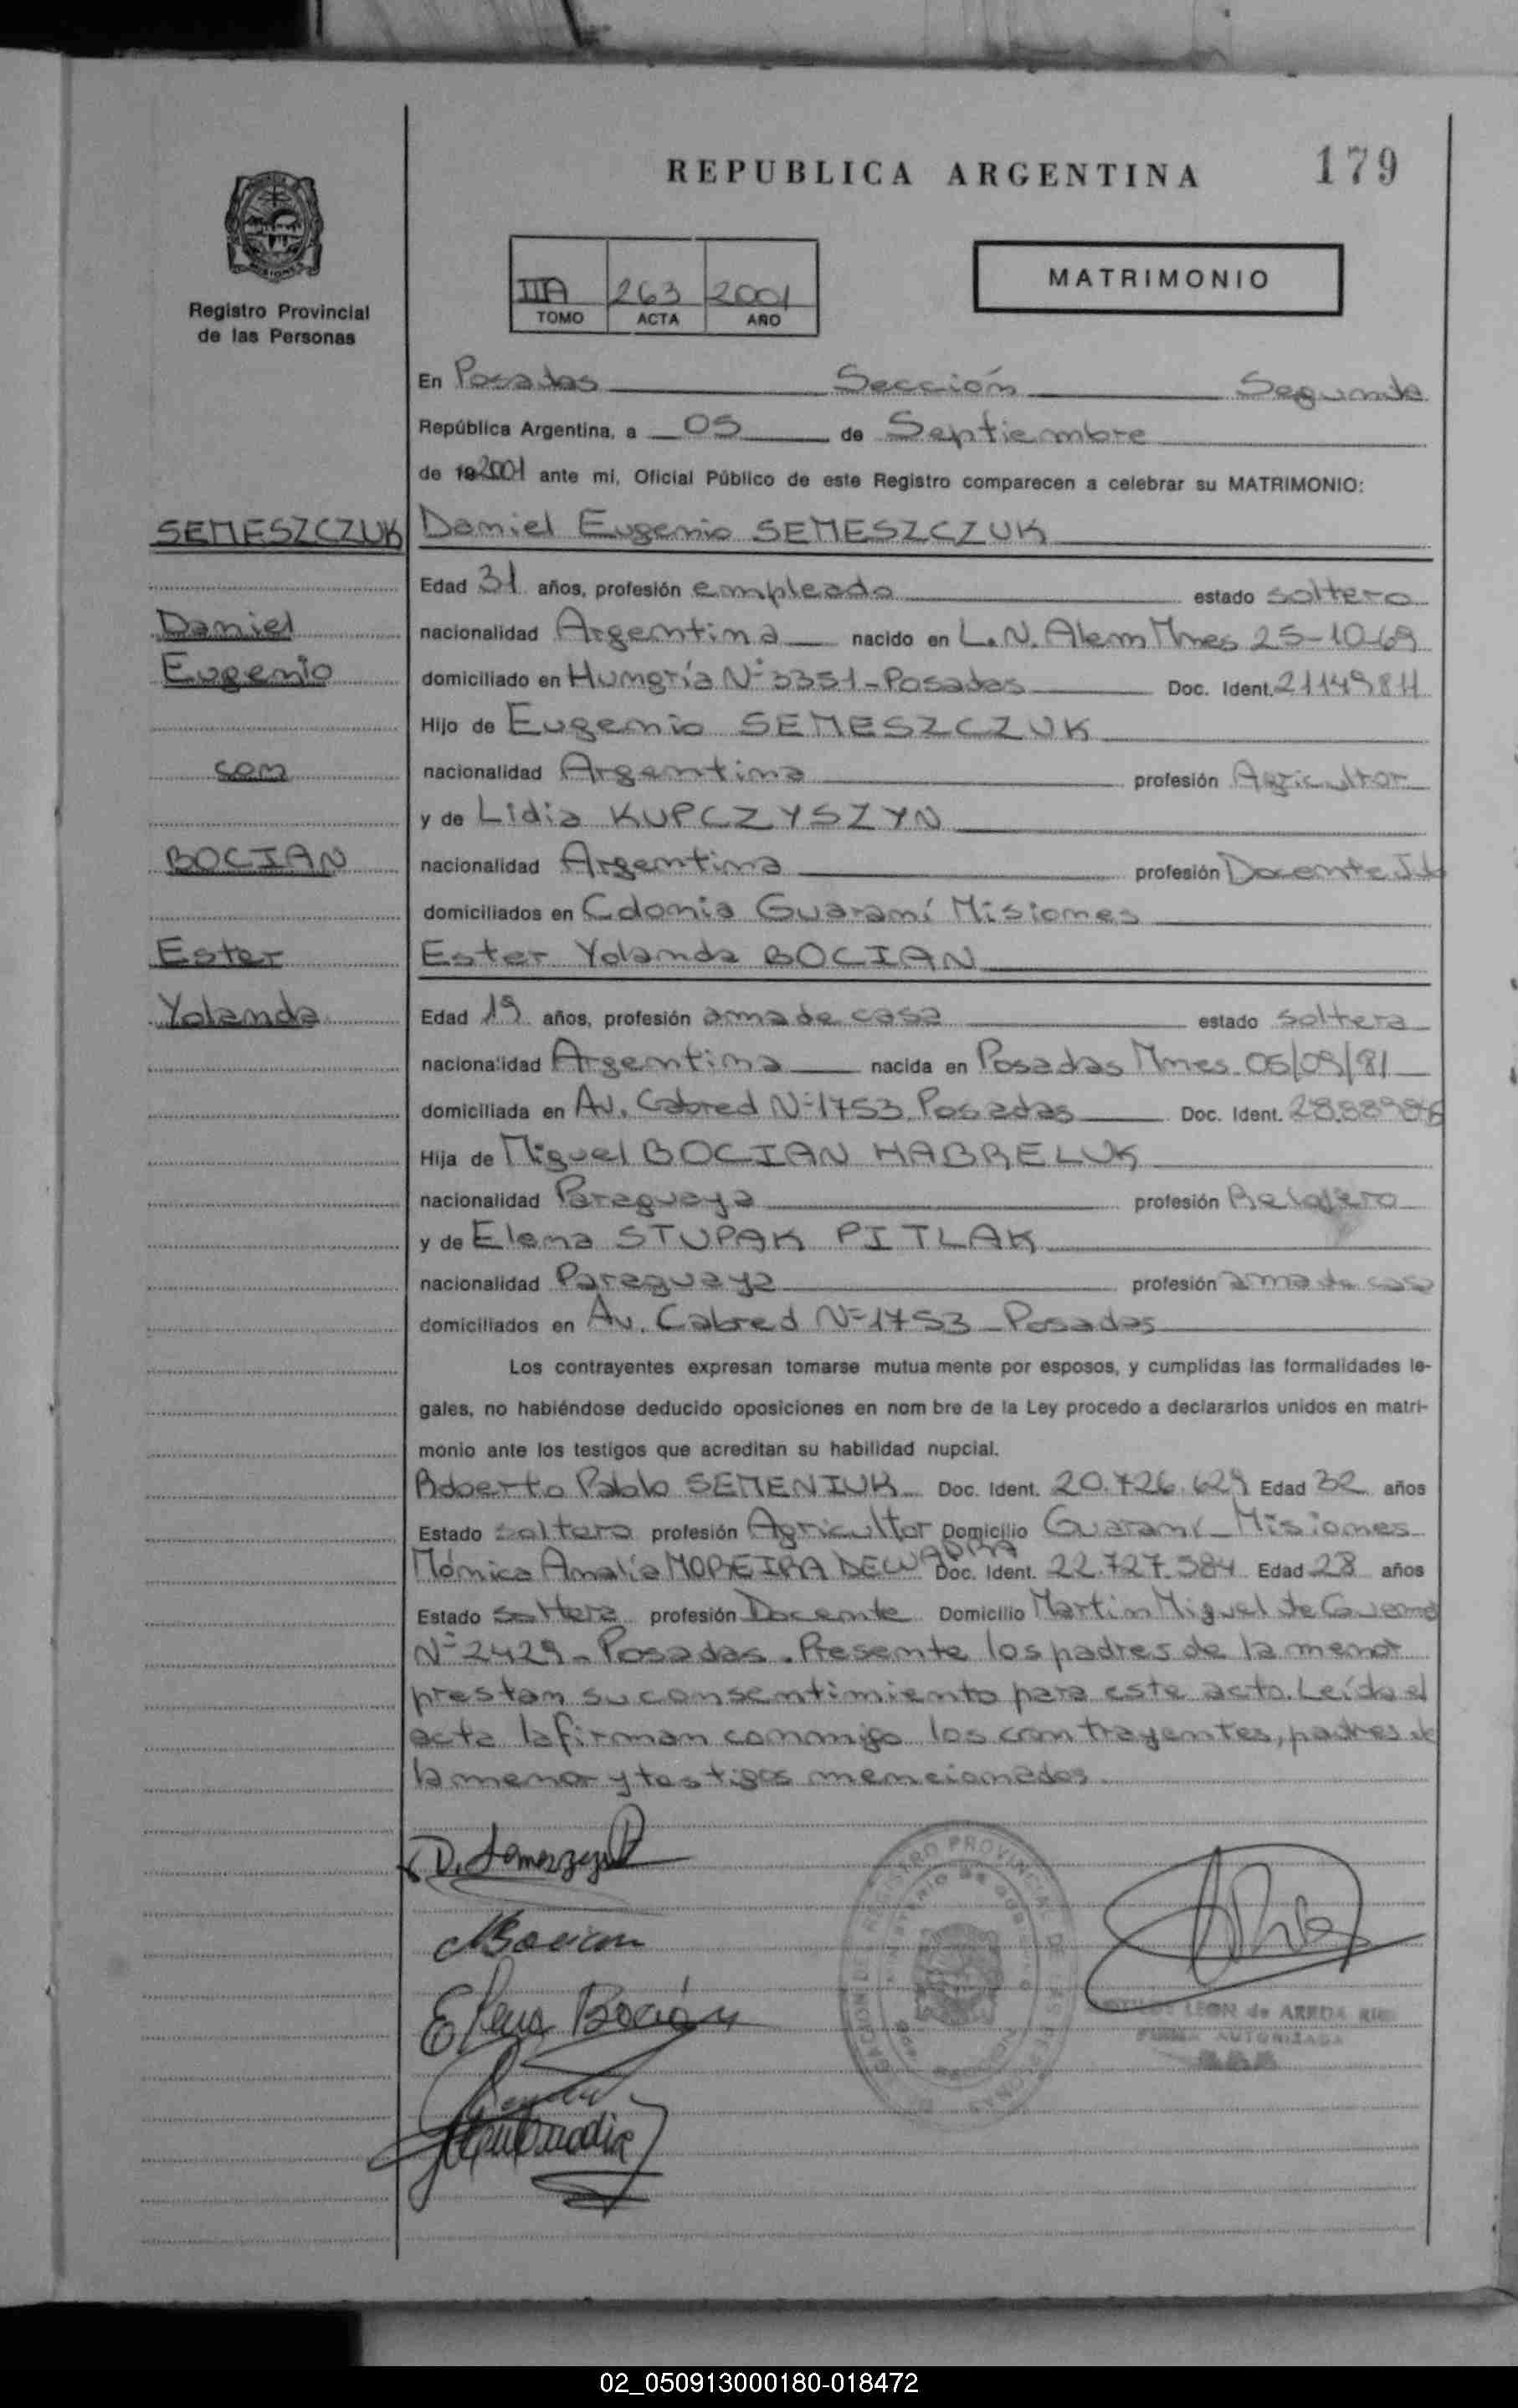 REPUBLICA ARGENTINA
179
MATRIMONIO
IIA 263 2001
TOMO ACTA AÑO
Registro Provincial
de las Personas
En Posadas Sección Segunda
República Argentina, a 05 de Septiembre
de 192001 ante mi, Oficial Público de este Registro comparecen a celebrar su MATRIMONIO:
SEMESZCZUK
Daniel
Eugenio
con
BOCIAN
Ester
Yolanda
Daniel Eugenio SEMESZCZUK
Edad 31 años, profesión empleado estado soltero
nacionalidad Argentina nacido en L.N. Alem Mnes 25-10-69
domiciliado en Hungría Nº 3351-Posadas Doc. Ident. 21149811
Hijo de Eugenio SEMESZCZUK
nacionalidad Argentina profesión Agricultor
y de Lidia KUPCZYSZYN
nacionalidad Argentina profesión Docente Jub
domiciliados en Colonia Guaraní Misiones
Ester Yolanda BOCIAN
Edad 19 años, profesión ama de casa estado soltera
nacionalidad Argentina nacida en Posadas Mnes 05/09/81
domiciliada en Av. Cabred Nº 1753 Posadas Doc. Ident.
Hija de Miguel BOCIAN HABRELUK
nacionalidad Paraguaya profesión Relojero
y de Elena STUPAK PITLAK
nacionalidad Paraguaya profesión ama de casa
domiciliados en Av. Cabred Nº 1753 - Posadas
Los contrayentes expresan tomarse mutua mente por esposos, y cumplidas las formalidades le-
gales, no habiéndose deducido oposiciones en nom bre de la Ley procedo a declararlos unidos en matri-
monio ante los testigos que acreditan su habilidad nupcial.
Roberto Pablo SEMENIUK Doc. Ident. 20.726.629 Edad 32 años
Estado soltero profesión Agricultor Domicilio Guaraní - Misiones
Mónica Analía MOREIRA DEWADRA Doc. Ident. 22.727.384 Edad 28 años
Estado soltera profesión Docente Domicilio Martin Miguel de Guemes
Nº 2429 - Posadas. Presente los padres de la menor
prestan su consentimiento para este acto. Leída el
acta la firman conmigo los contrayentes, padres de
la menor y testigos mencionados.
Elena Bocián
LEON de
FIRMA AUTORIZADA
02_050913000180-018472